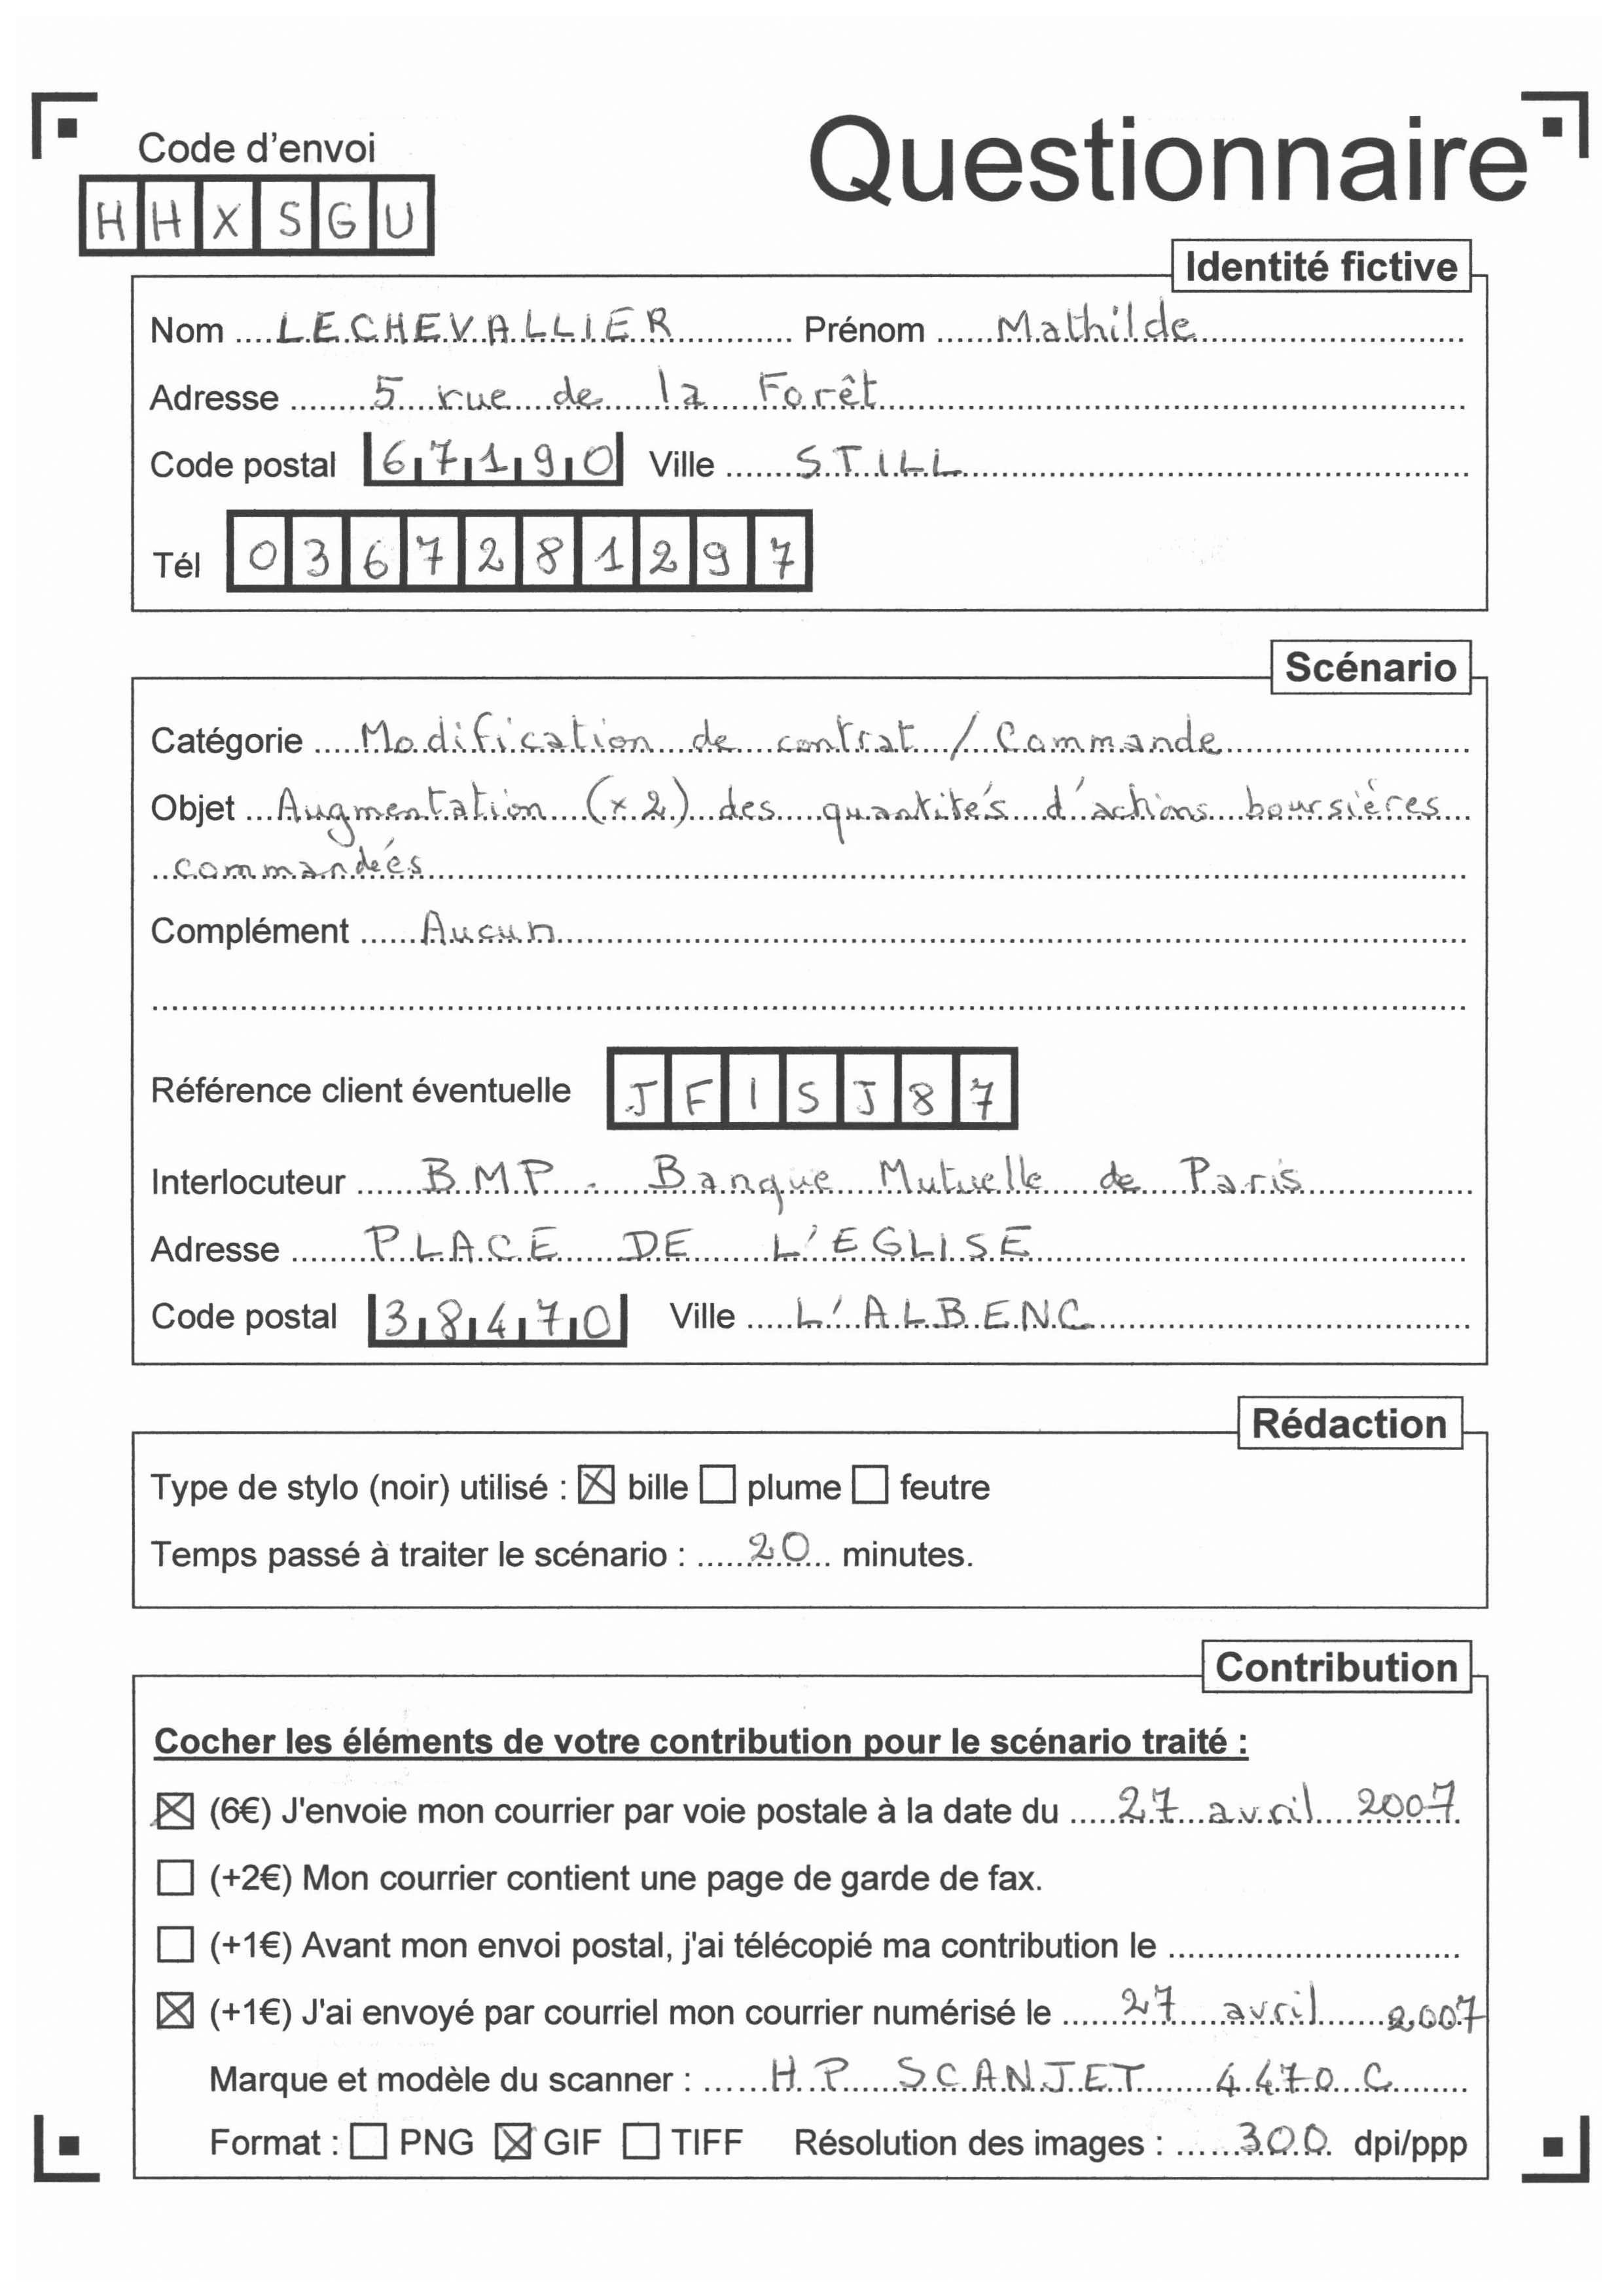 Questionnaire
Code d'envoi
HHXSGU
Identité fictive
Nom LECHEVALLIER Prénom Mathilde
Adresse 5 rue de la Forêt
Code postal 67190 Ville STILL
Tél 0367281297
Scénario
Catégorie Modification de contrat / Commande
Objet Augmentation (x2) des quantités d'actions boursières
commandées
Complément Aucun
Référence client éventuelle JFISJ87
Interlocuteur BMP - Banque Mutuelle de Paris
Adresse PLACE DE L'EGLISE
Code postal 38470 Ville L'ALBENC
Rédaction
Type de stylo (noir) utilisé : ☒ bille ☐ plume ☐ feutre
Temps passé à traiter le scénario : 20 minutes.
Contribution
Cocher les éléments de votre contribution pour le scénario traité :
☒ (6€) J'envoie mon courrier par voie postale à la date du 27 avril 2007
☐ (+2€) Mon courrier contient une page de garde de fax.
☐ (+1€) Avant mon envoi postal, j'ai télécopié ma contribution le
☒ (+1€) J'ai envoyé par courriel mon courrier numérisé le 27 avril 2007
Marque et modèle du scanner : HP SCANJET 4470 C
Format : ☐ PNG ☒ GIF ☐ TIFF Résolution des images : 300 dpi/ppp